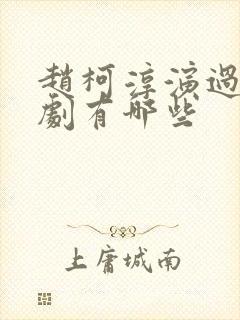 趙柯淳演過
劇有哪些
上庸城南